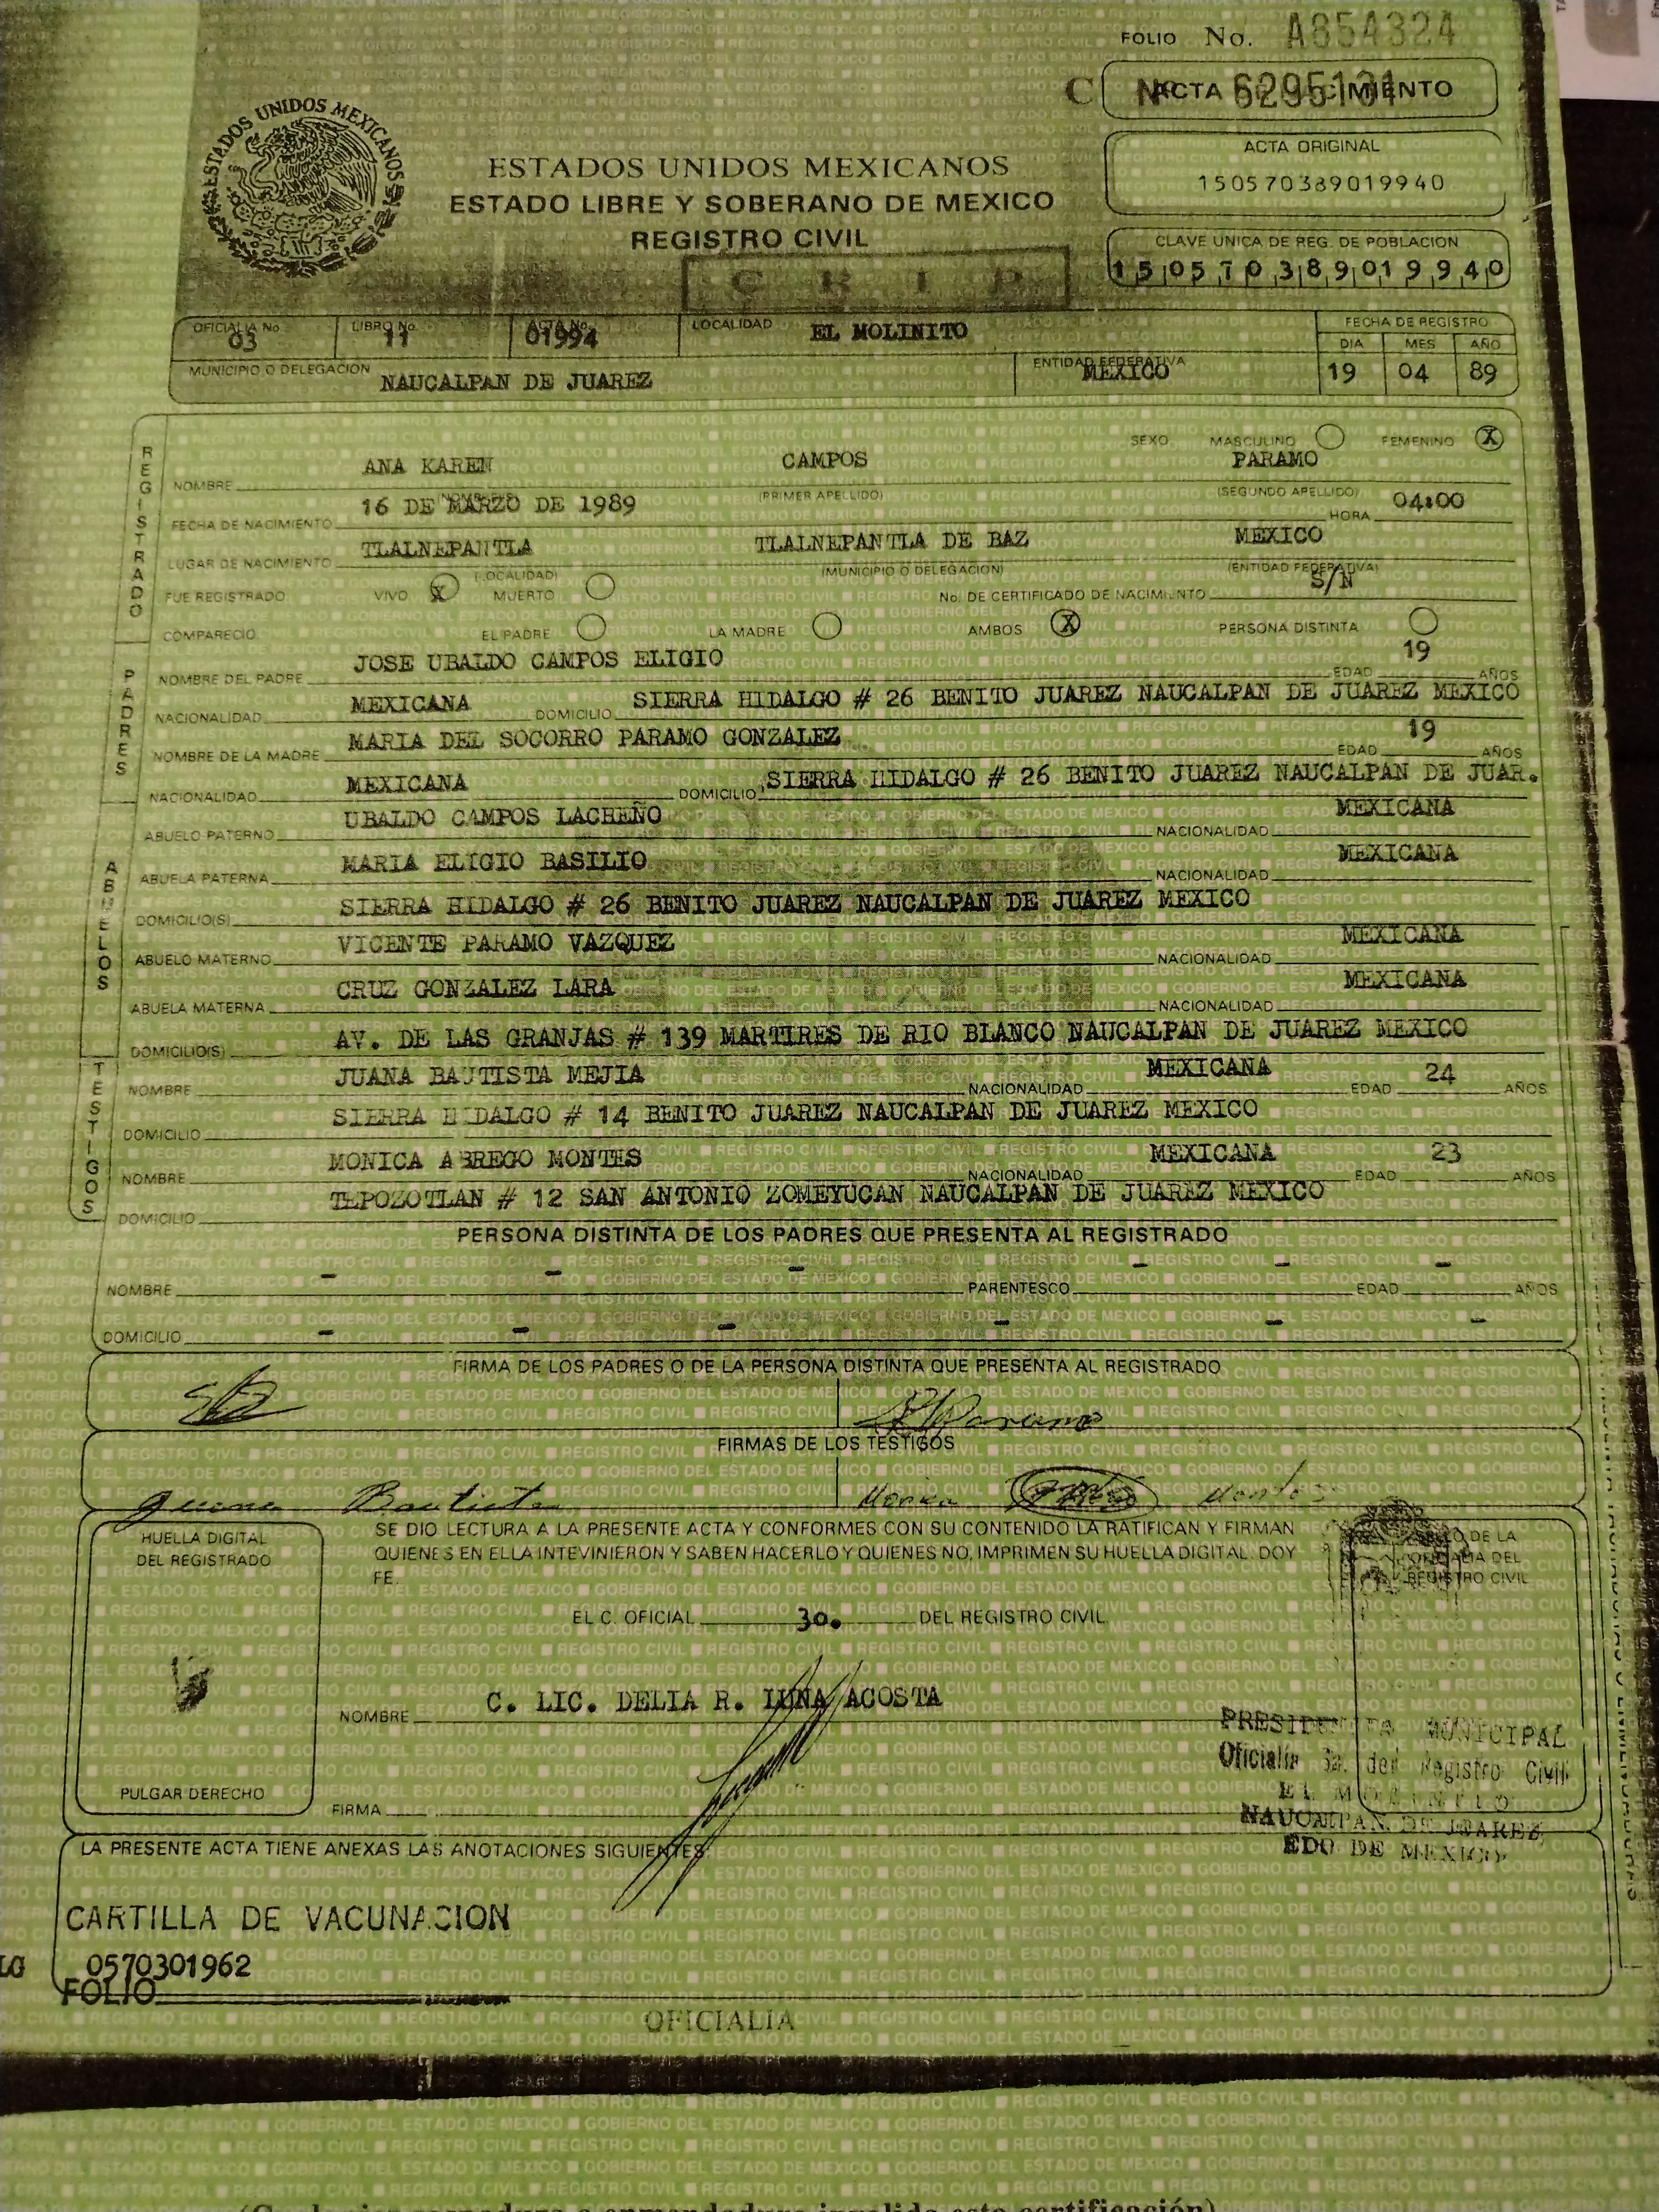 FOLIO No. A854324
C Nº 6295131
ACTA DE NACIMIENTO
ESTADOS UNIDOS MEXICANOS
ESTADOS UNIDOS MEXICANOS
ESTADO LIBRE Y SOBERANO DE MEXICO
REGISTRO CIVIL
C R I P
ACTA ORIGINAL
150570389019940
CLAVE UNICA DE REG. DE POBLACION
150570389019940
OFICIALIA No 03 LIBRO No. 11 ACTA No. 01994 LOCALIDAD EL MOLINITO
FECHA DE REGISTRO
DIA MES AÑO
MUNICIPIO O DELEGACION NAUCALPAN DE JUAREZ ENTIDAD FEDERATIVA MEXICO 19 04 89
REGISTRADO
SEXO MASCULINO FEMENINO X
NOMBRE ANA KAREN CAMPOS PARAMO
(NOMBRE) (PRIMER APELLIDO) (SEGUNDO APELLIDO)
FECHA DE NACIMIENTO 16 DE MARZO DE 1989 HORA 04:00
LUGAR DE NACIMIENTO TLALNEPANTLA TLALNEPANTLA DE BAZ MEXICO
(LOCALIDAD) (MUNICIPIO O DELEGACION) (ENTIDAD FEDERATIVA)
FUE REGISTRADO VIVO X MUERTO No. DE CERTIFICADO DE NACIMIENTO S/N
COMPARECIO EL PADRE LA MADRE AMBOS X PERSONA DISTINTA
PADRES
NOMBRE DEL PADRE JOSE UBALDO CAMPOS ELIGIO EDAD 19 AÑOS
NACIONALIDAD MEXICANA DOMICILIO SIERRA HIDALGO # 26 BENITO JUAREZ NAUCALPAN DE JUAREZ MEXICO
NOMBRE DE LA MADRE MARIA DEL SOCORRO PARAMO GONZALEZ EDAD 19 AÑOS
NACIONALIDAD MEXICANA DOMICILIO SIERRA HIDALGO # 26 BENITO JUAREZ NAUCALPAN DE JUAR.
ABUELOS
ABUELO PATERNO UBALDO CAMPOS LACHEÑO NACIONALIDAD MEXICANA
ABUELA PATERNA MARIA ELIGIO BASILIO NACIONALIDAD MEXICANA
DOMICILIO(S) SIERRA HIDALGO # 26 BENITO JUAREZ NAUCALPAN DE JUAREZ MEXICO
ABUELO MATERNO VICENTE PARAMO VAZQUEZ NACIONALIDAD MEXICANA
ABUELA MATERNA CRUZ GONZALEZ LARA NACIONALIDAD MEXICANA
DOMICILIO(S) AV. DE LAS GRANJAS # 139 MARTIRES DE RIO BLANCO NAUCALPAN DE JUAREZ MEXICO
TESTIGOS
NOMBRE JUANA BAUTISTA MEJIA NACIONALIDAD MEXICANA EDAD 24 AÑOS
DOMICILIO SIERRA HIDALGO # 14 BENITO JUAREZ NAUCALPAN DE JUAREZ MEXICO
NOMBRE MONICA ABREGO MONTES NACIONALIDAD MEXICANA EDAD 23 AÑOS
DOMICILIO TEPOZOTLAN # 12 SAN ANTONIO ZOMEYUCAN NAUCALPAN DE JUAREZ MEXICO
PERSONA DISTINTA DE LOS PADRES QUE PRESENTA AL REGISTRADO
NOMBRE - - - PARENTESCO - - EDAD - AÑOS
DOMICILIO - - - - - -
FIRMA DE LOS PADRES O DE LA PERSONA DISTINTA QUE PRESENTA AL REGISTRADO
Paramo
FIRMAS DE LOS TESTIGOS
Juana Bautista Monica Montes
HUELLA DIGITAL
DEL REGISTRADO
PULGAR DERECHO
SE DIO LECTURA A LA PRESENTE ACTA Y CONFORMES CON SU CONTENIDO LA RATIFICAN Y FIRMAN
QUIENES EN ELLA INTEVINIERON Y SABEN HACERLO Y QUIENES NO, IMPRIMEN SU HUELLA DIGITAL. DOY
FE.
SELLO DE LA
OFICIALIA DEL
REGISTRO CIVIL
EL C. OFICIAL 3o. DEL REGISTRO CIVIL
NOMBRE C. LIC. DELIA R. LUNA ACOSTA
FIRMA
PRESIDENCIA MUNICIPAL
Oficialía 3a. del Registro Civil
EL MOLINITO
NAUCALPAN DE JUAREZ
EDO DE MEXICO
LA PRESENTE ACTA TIENE ANEXAS LAS ANOTACIONES SIGUIENTES:
CARTILLA DE VACUNACION
LG 0570301962
FOLIO
OFICIALIA